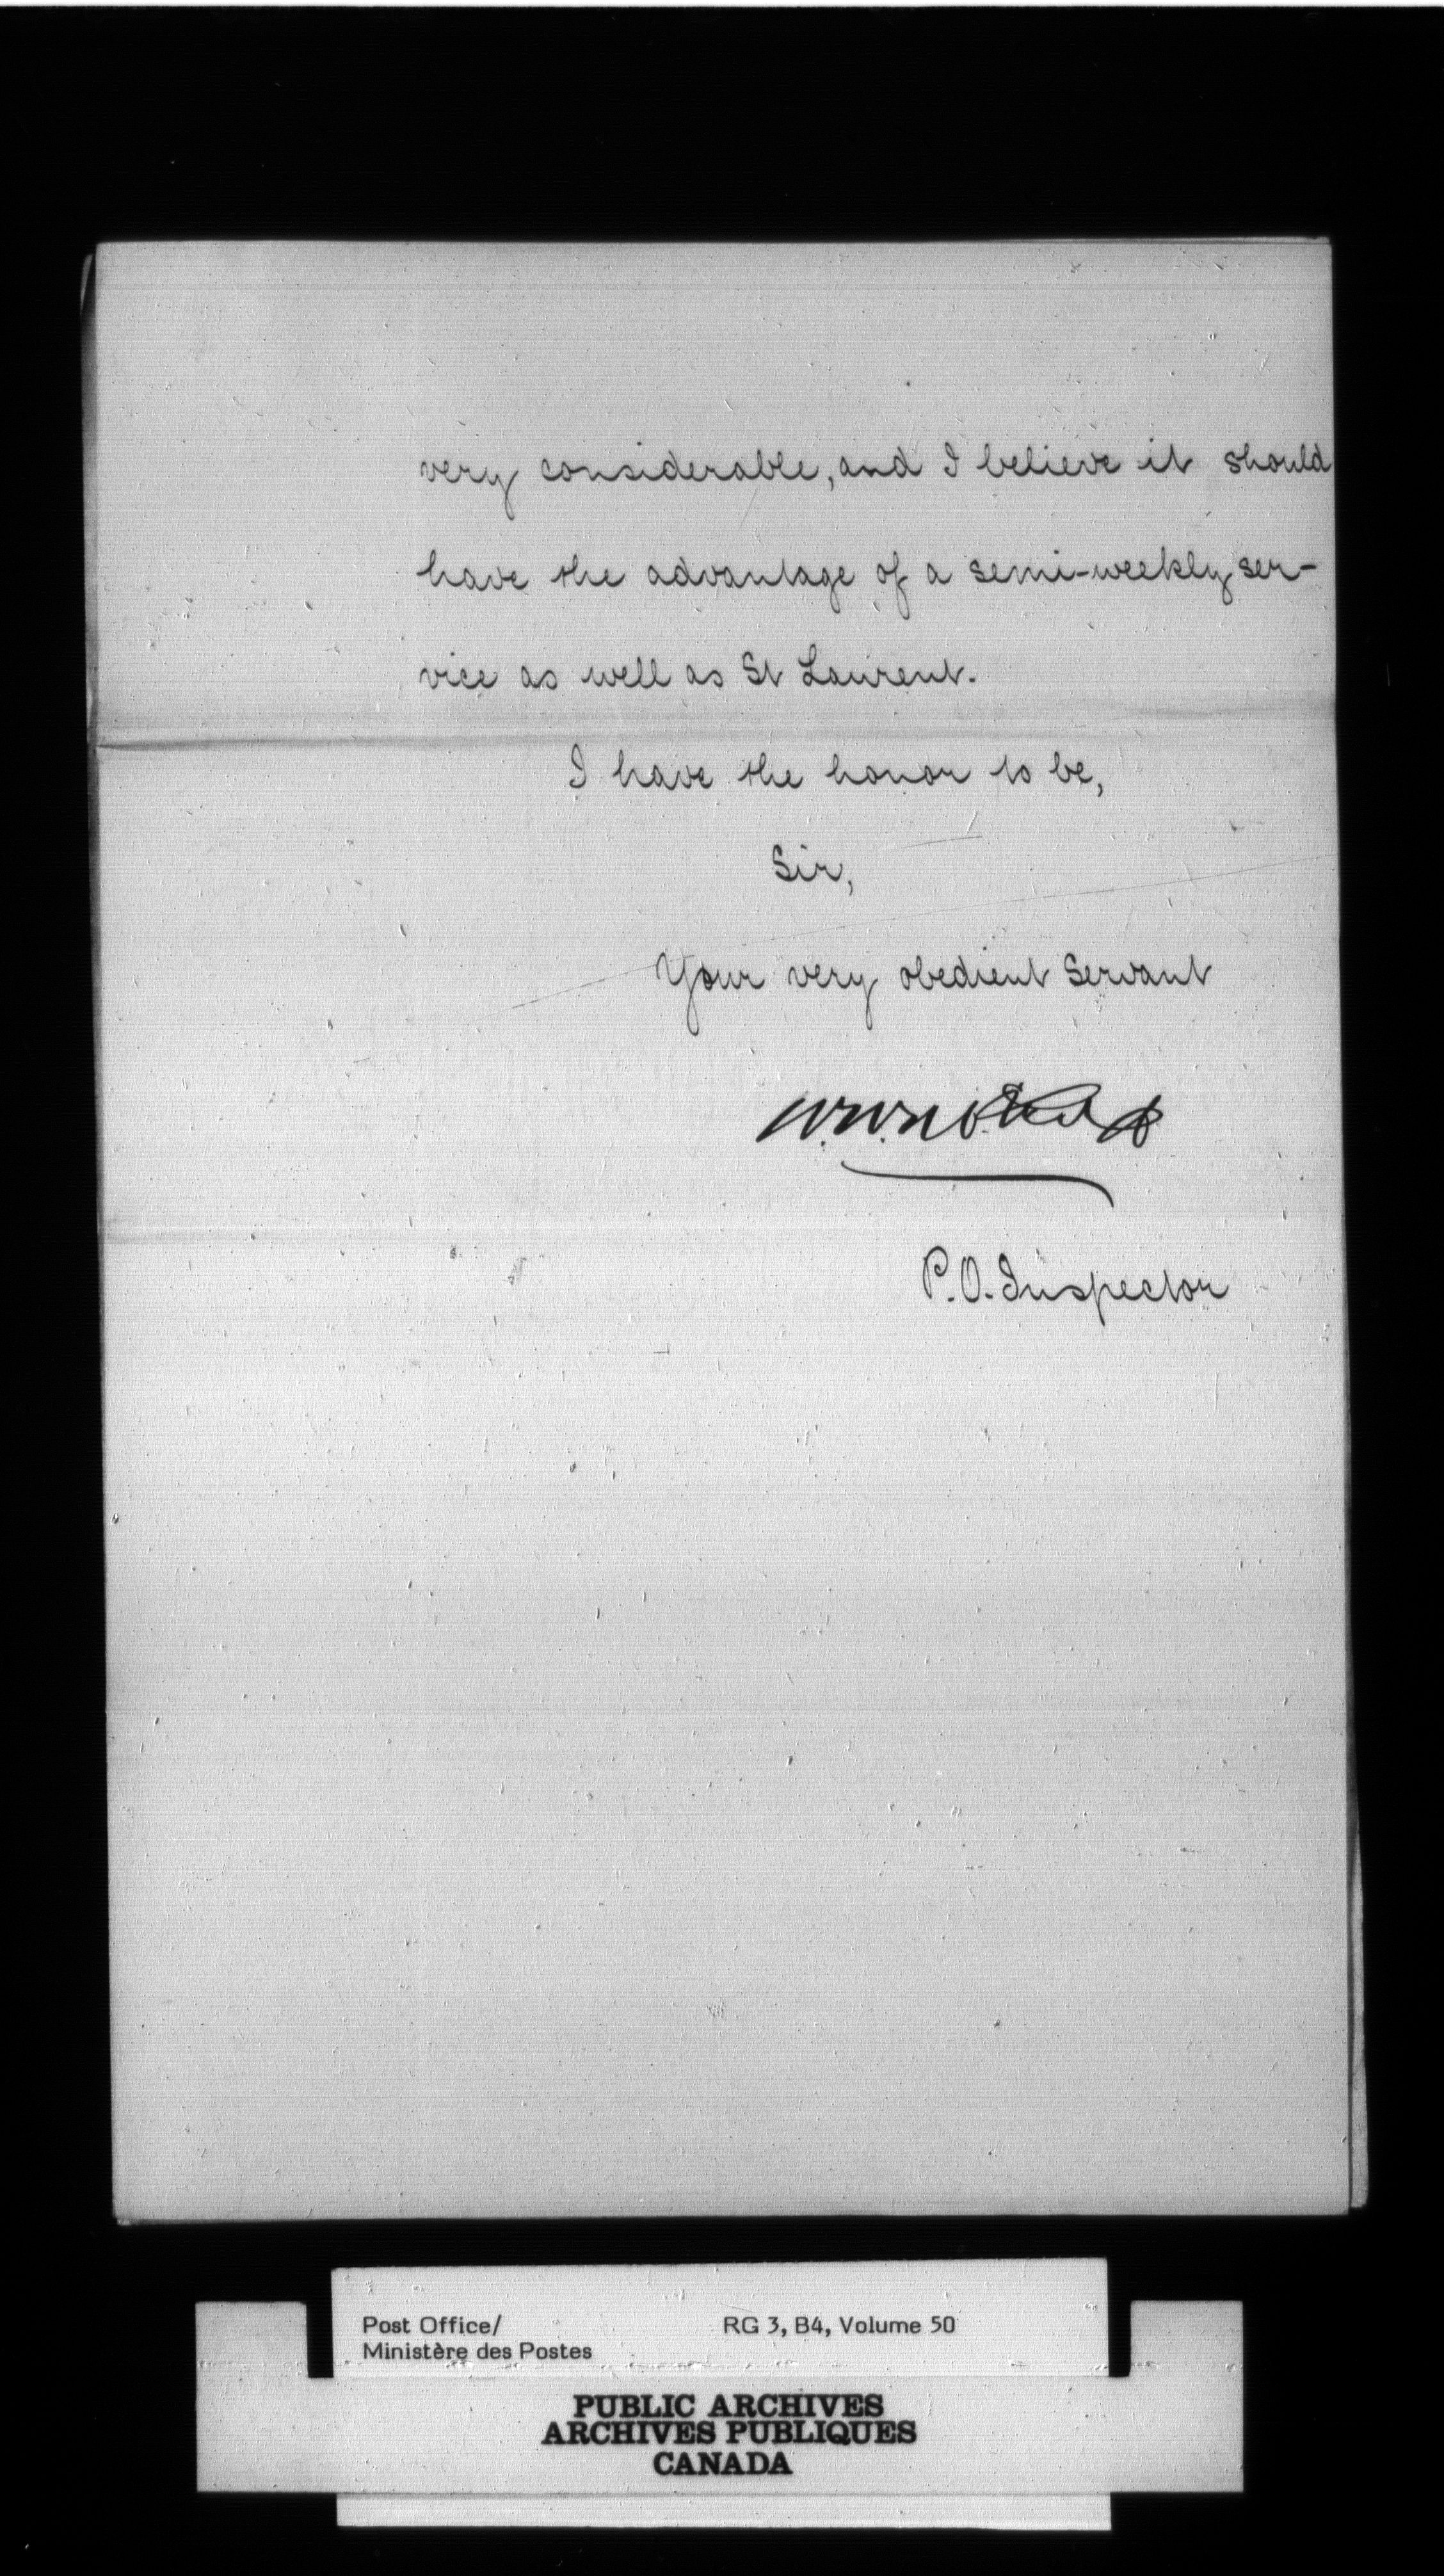 very considerable, and I believe it should
have the advantage of a semi-weekly ser-
vice as well as St Laurent.
I have the honor to be,
Sir,
Your very obedient Servant
P.O. Inspector
Post Office/
Ministère des Postes
RG 3, B4, Volume 50
PUBLIC ARCHIVES
ARCHIVES PUBLIQUES
CANADA